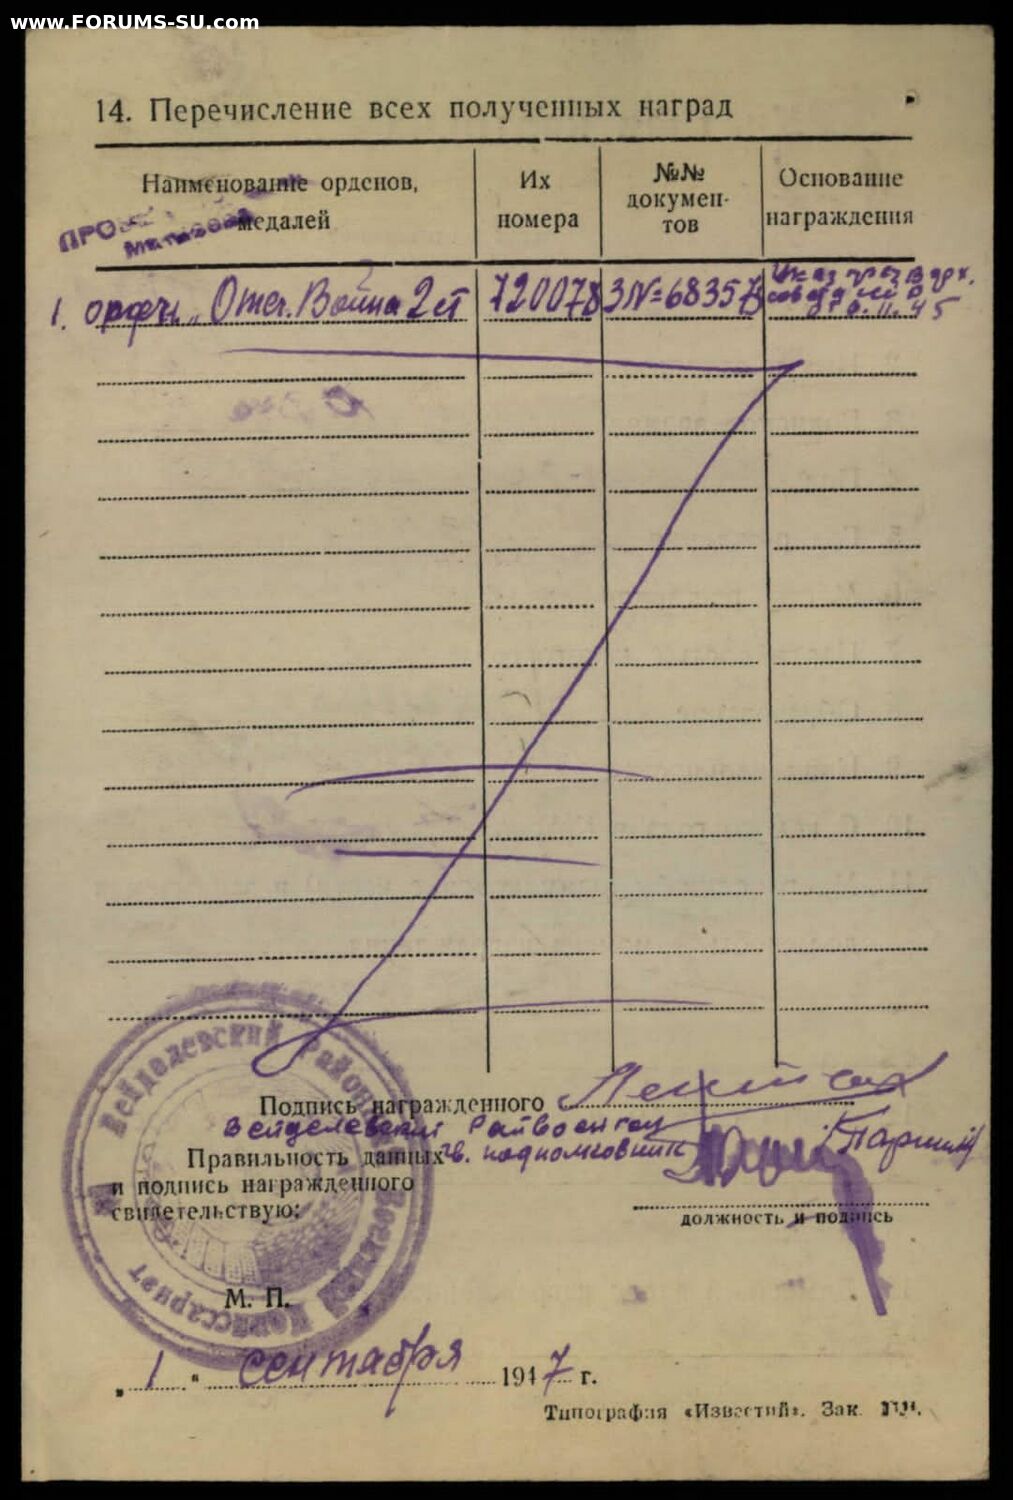 www.FORUMS-SU.com
14. Перечисление всех полученных наград
Наименование орденов, медалей
Их номера
№№ докумен-
тов
Основание награждения
1. орден „Отеч. Война 2 ст
720078
З№=683573
Указ през Верх.
6.11.45
Подпись награжденного
Вейделевский Райвоенком
Правильность данных гв. подполковник
и подпись награжденного
свидетельствую:
должность и подпись
Вейделевский Районный Военный Комиссариат
М. П.
„ 1 “ сентября 1947 г.
Типография «Известий». Зак.